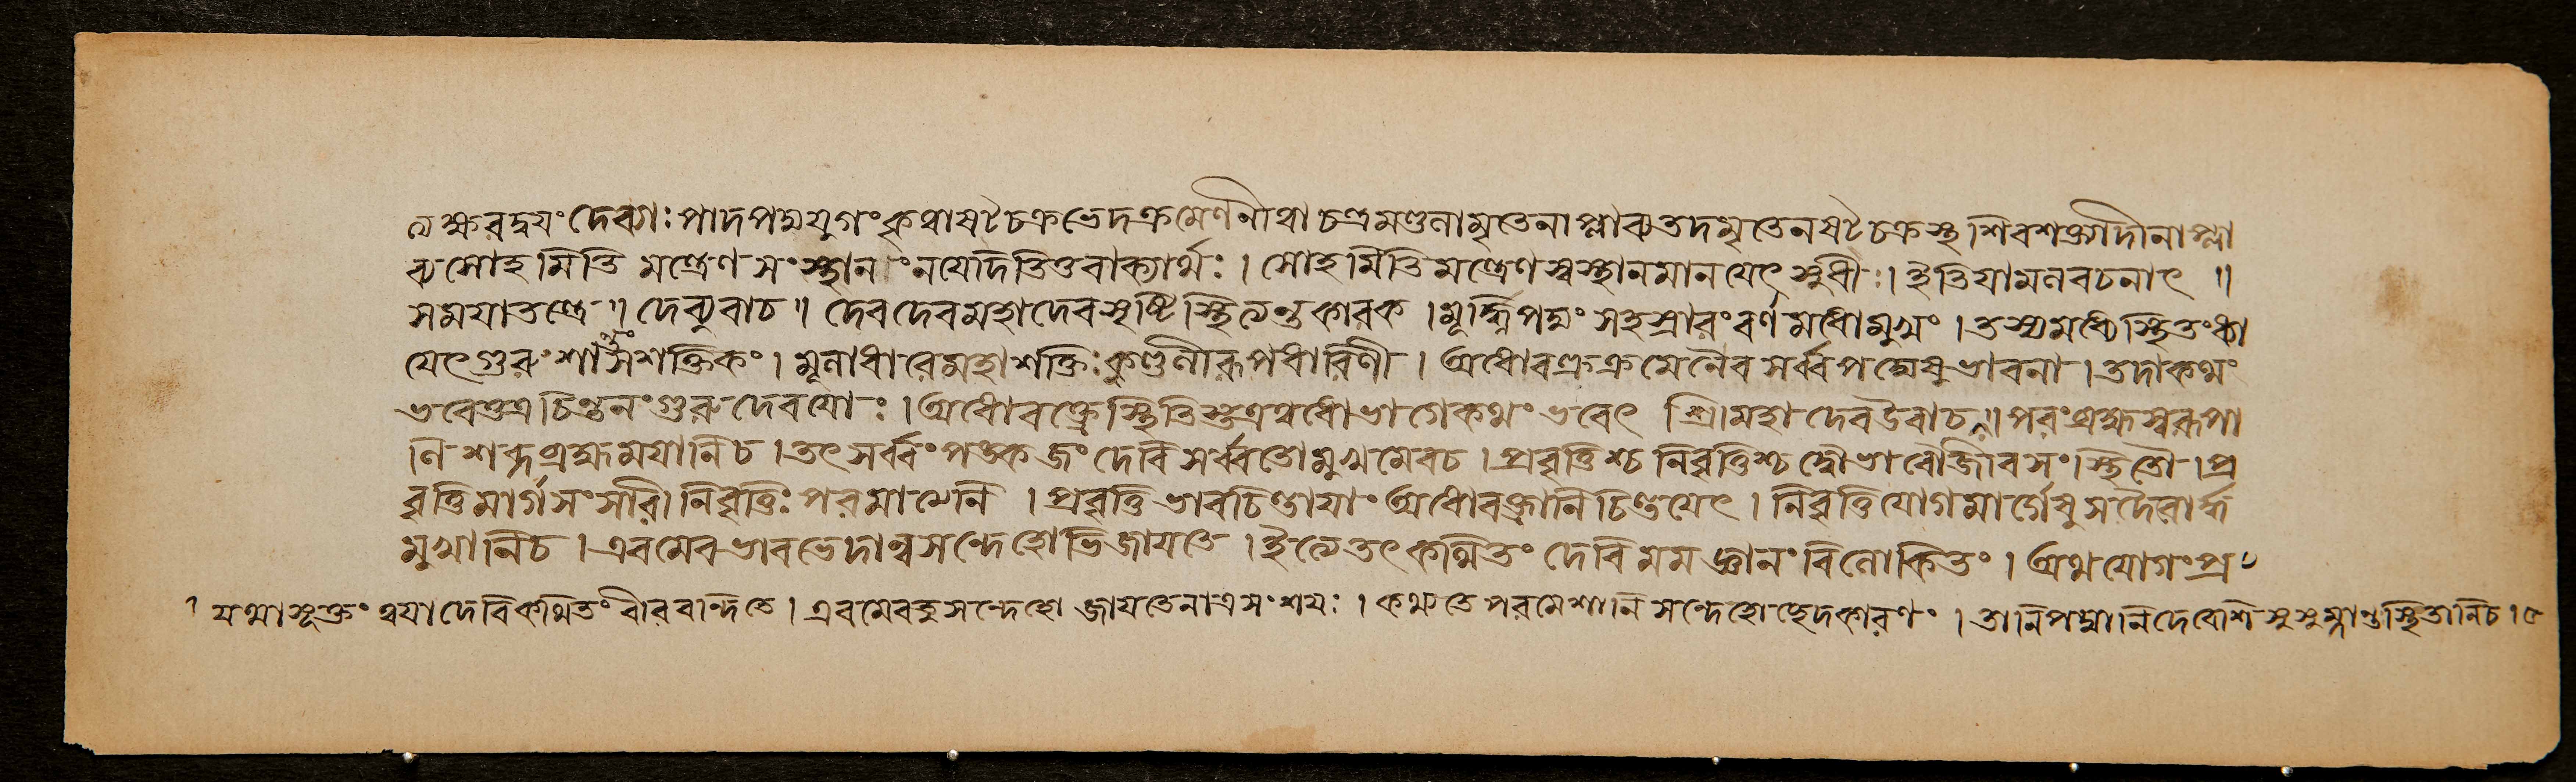 ত্যক্ষরদ্বয়ং দেব্যাঃ পাদপদ্মযুগং হৃত্বা ষট্চক্রভেদক্রমেণ নীত্বা চন্দ্রমণ্ডলামৃতেনাপ্লাব্য তদমৃতেন ষট্চক্রস্থ শিবশক্ত্যাদীনাপ্লা
ব্য সোহমিতি মন্ত্রেণ সংস্থানং নয়েদিতি তু বাক্যার্থঃ । সোহমিতি মন্ত্রেণ স্বস্থানমানয়েৎ সুধীঃ । ইতি যামলবচনাৎ ॥
সময়াতন্ত্রে ॥ দেব্যুবাচ ॥ দেবদেব মহাদেব সৃষ্টিস্থিত্যন্তকারক । মূর্দ্ধ্নি পদ্মং সহস্রারং বর্ণমধোমুখং । তস্য মধ্যে স্থিতং ধ্যা
য়েৎ গুরুং শান্তং সশক্তিকং । মূলাধারে মহাশক্তিঃ কুণ্ডলীরূপধারিণী । অধোবক্ত্রক্রমেনৈব সর্ব্বপদ্মেষু ভাবনা । তদা কথং
ভবেত্তত্র চিন্তনং গুরুদেবয়োঃ । অধোবক্ত্রে স্থিতিস্তত্র ত্বধোভাগে কথং ভবেৎ শ্রীমহাদেব উবাচ ॥ পরং ব্রহ্মস্বরূপা
নি শব্দব্রহ্মময়ানি চ । তৎ সর্ব্বং পঙ্কজং দেবি সর্ব্বতোমুখমেব চ । প্রবৃত্তিশ্চ নিবৃত্তিশ্চ দ্বৌ ভাবৌ জীবসংস্থিতৌ । প্র
বৃত্তিমার্গসংসারি নিবৃত্তিঃ পরমাত্মনি । প্রবৃত্তিভাবচিন্তায়াং অধোবক্ত্রানি চিন্তয়েৎ । নিবৃত্তি যোগমার্গেষু সদৈবোর্দ্ধ
মুখানি চ । এবমেব ভাবভেদান্ন সন্দেহোভিজায়তে । ইত্যেতৎ কথিতং দেবি মম জ্ঞানং বিলোকিতং । অথ যোগং প্র
যথাসূক্তং ত্বয়া দেবি কথিতং বীরবন্দিতে । এবমেব তু সন্দেহো জায়তে নাত্র সংশয়ঃ । কথ্যতে পরমেশানি সন্দেহোচ্ছেদকারণং । তানি পদ্মানি দেবেশি সুসুম্নান্তস্থিতানি চ ।